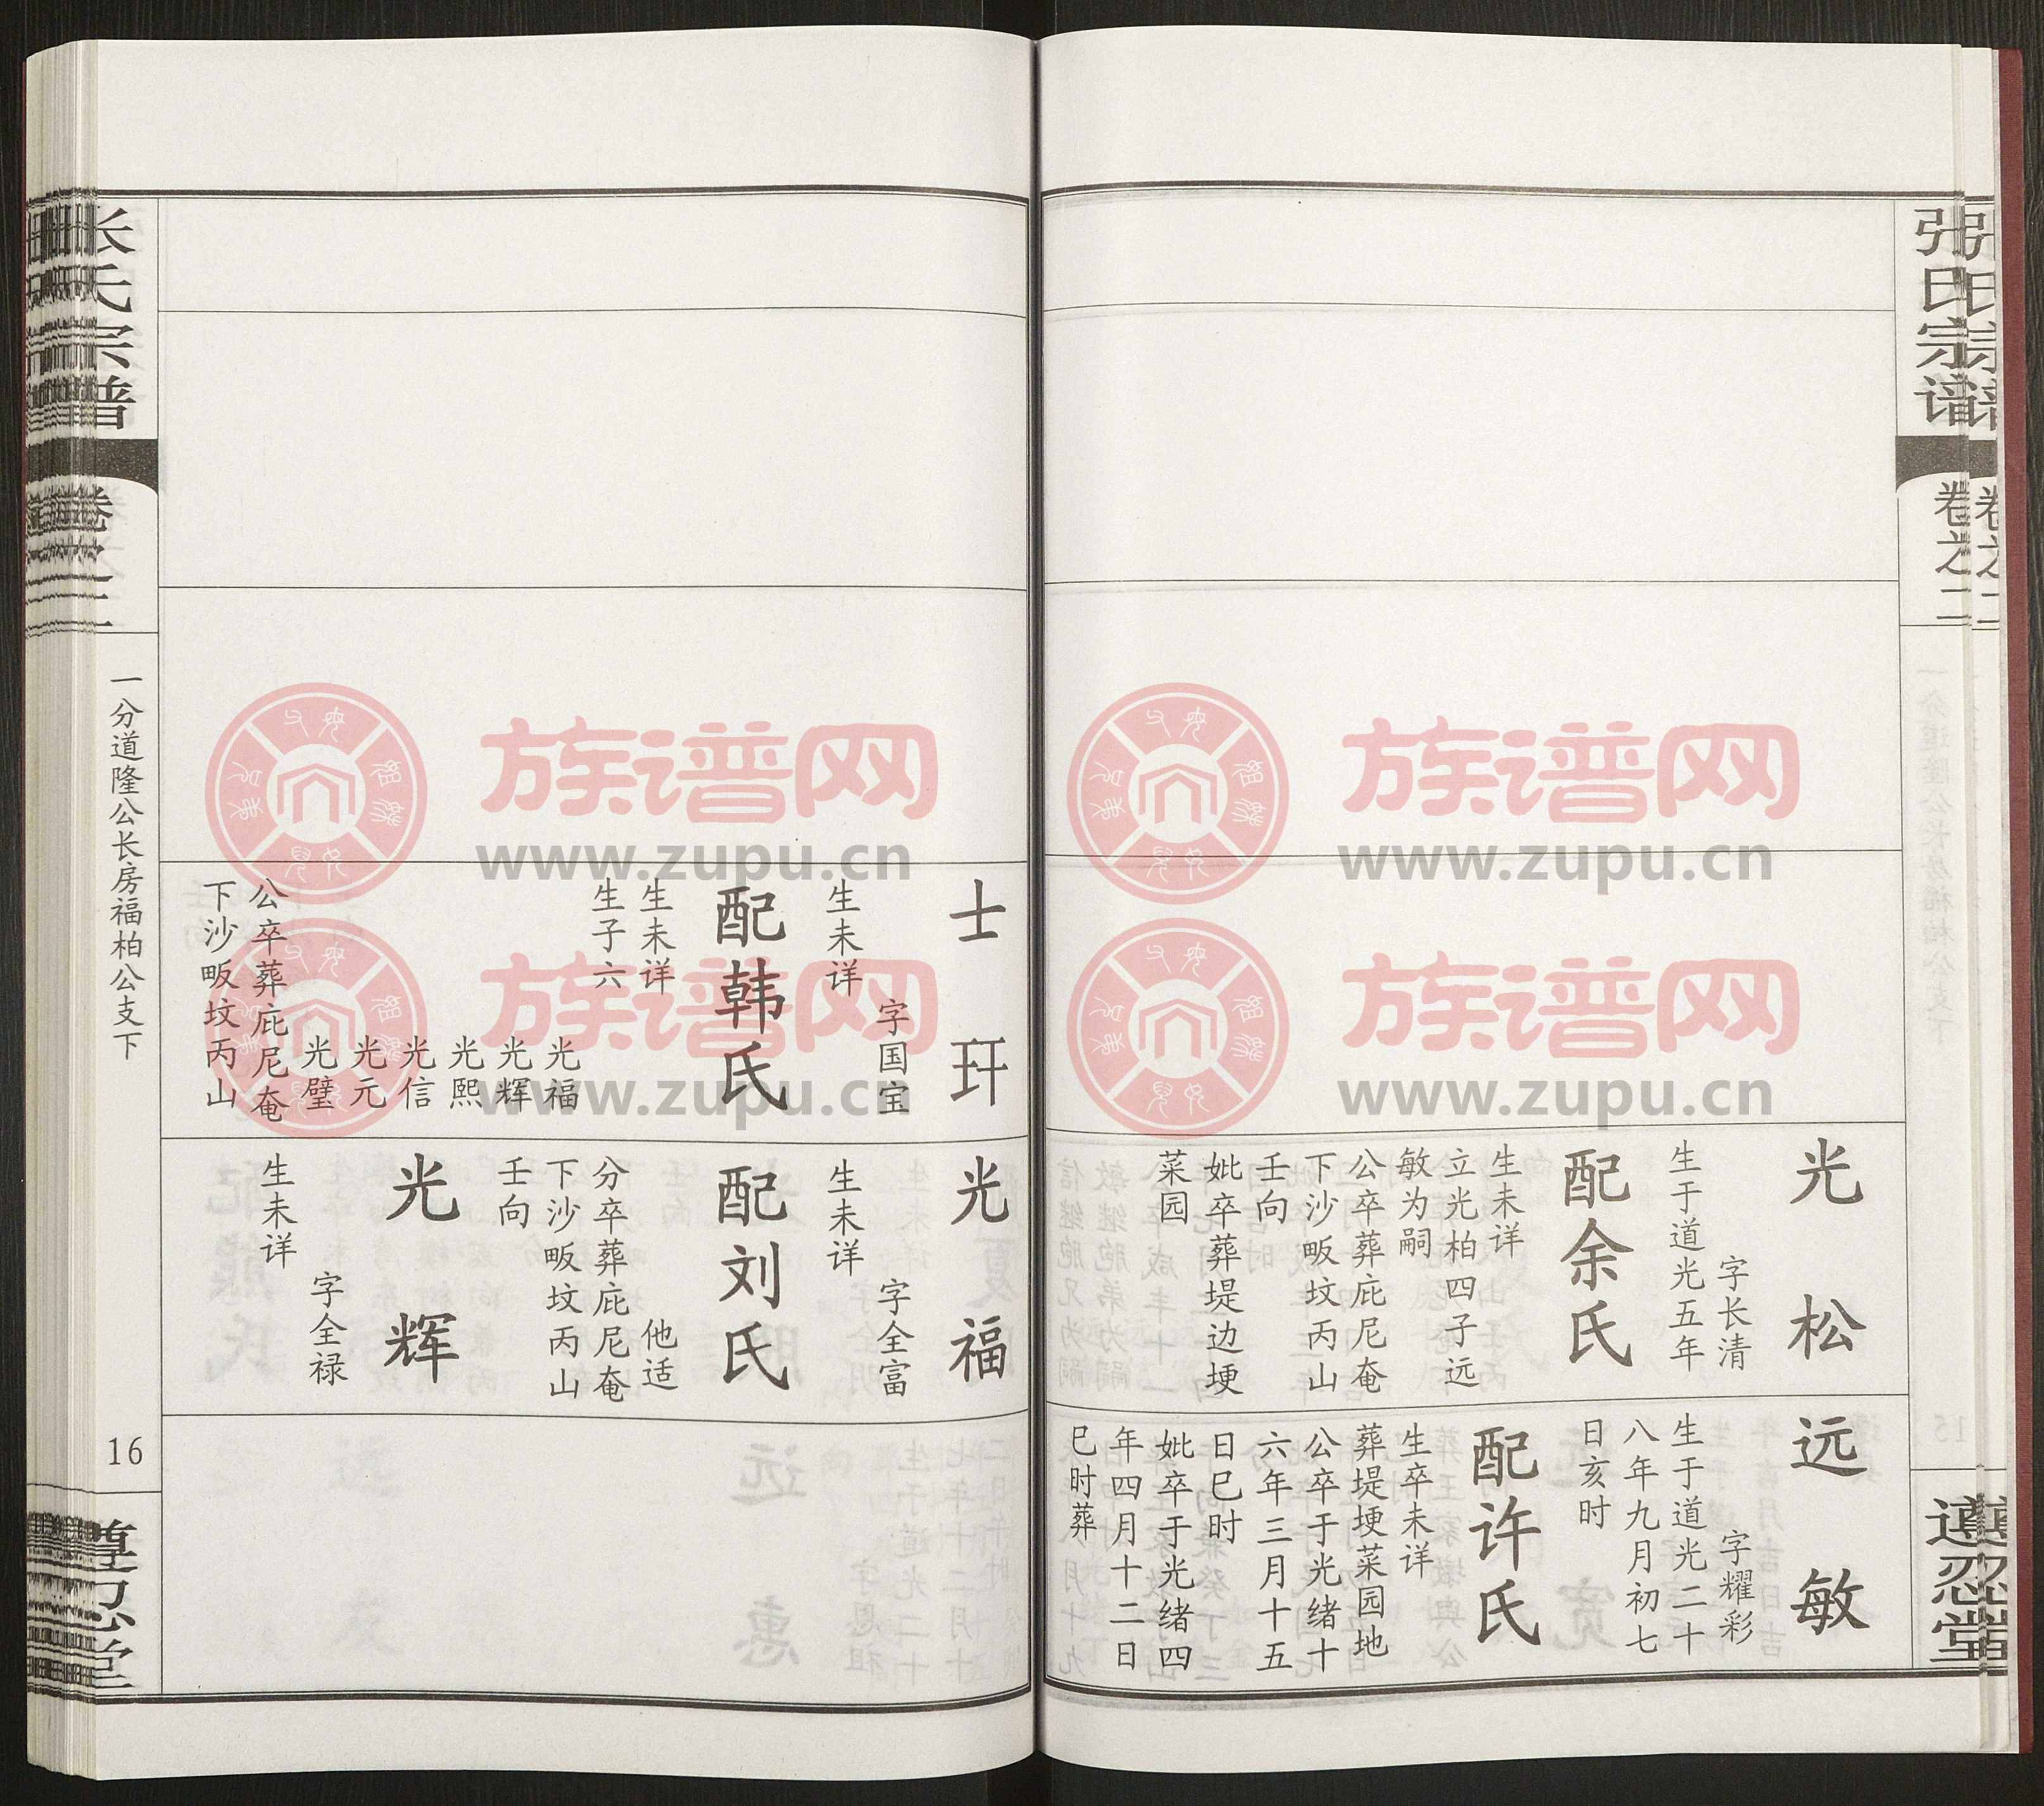 张氏宗谱
卷之二
遵忍堂
光松
字长清
生于道光五年
配余氏
生未详
立光柏四子远
敏为嗣
公卒葬庇尼奄
下沙畈坟丙山
壬向
妣卒葬堤边埂
菜园
远敏
字耀彩
生于道光二十
八年九月初七
日亥时
配许氏
生卒未详
葬堤埂菜园地
公卒于光绪十
六年三月十五
日巳时
妣卒于光绪四
年四月十二日
巳时葬
士玕
字国宝
生未详
配韩氏
生未详
生子六
光福
光辉
光熙
光信
光元
光璧
公卒葬庇尼奄
下沙畈坟丙山
光福
字全富
生未详
配刘氏
他适
分卒葬庇尼奄
下沙畈坟丙山
壬向
光辉
字全禄
生未详
张氏宗谱
卷之二
一分道隆公长房福柏公支下
16
遵忍堂
族谱网
www.zupu.cn
族谱网
www.zupu.cn
族谱网
www.zupu.cn
族谱网
www.zupu.cn